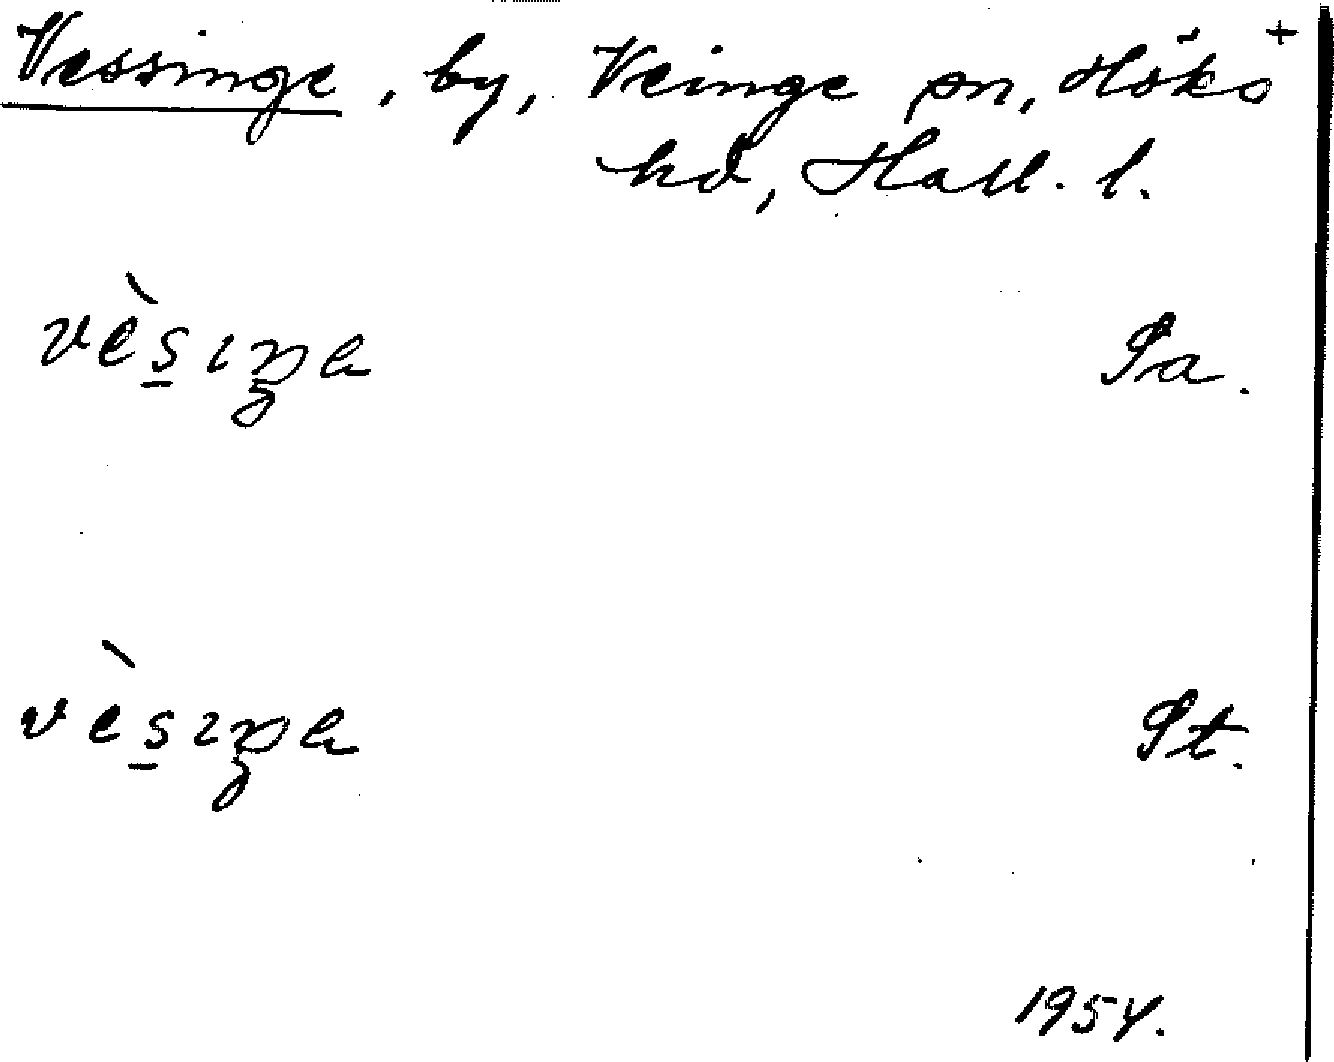 Vessinge, by, Veinge sn, Höks +
hd, Hall. l.
Sa.
St.
1954.